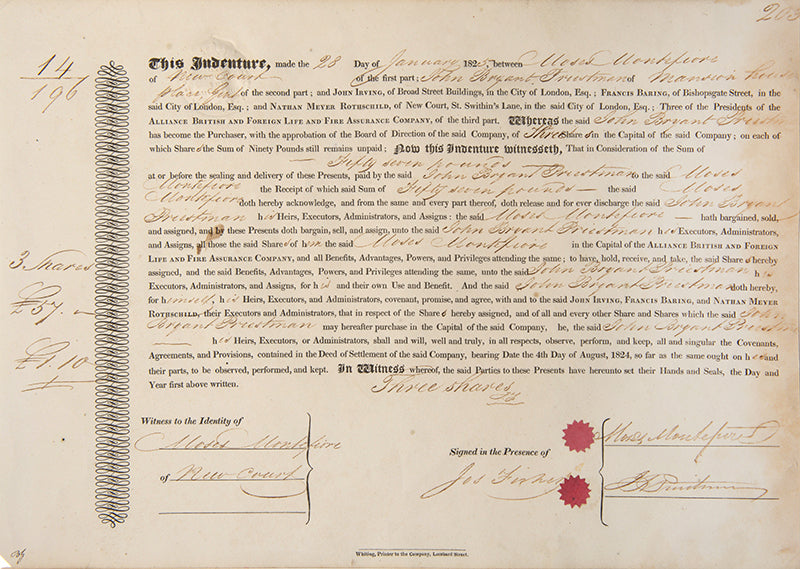 203
14
196
This Indenture, made the 28 Day of January 182 between Moses Montefiore
of New Court of the first part; John Bryant Priestman of Mansion house
place of the second part; and JOHN IRVING, of Broad Street Buildings, in the City of London, Esq.; FRANCIS BARING, of Bishopsgate Street, in the
said City of London, Esq.; and NATHAN MEYER ROTHSCHILD, of New Court, St. Swithin's Lane, in the said City of London, Esq.; Three of the Presidents of the
ALLIANCE BRITISH AND FOREIGN LIFE AND FIRE ASSURANCE COMPANY, of the third part. Whereas the said John Bryant Priestman
has become the Purchaser, with the approbation of the Board of Direction of the said Company, of Three Shares in the Capital of the said Company; on each of
which Shares the Sum of Ninety Pounds still remains unpaid; Now this Indenture witnesseth, That in Consideration of the Sum of
Fifty seven pounds
at or before the sealing and delivery of these Presents, paid by the said John Bryant Priestman to the said Moses
Montefiore the Receipt of which said Sum of Fifty seven pounds — the said Moses
Montefiore doth hereby acknowledge, and from the same and every part thereof, doth release and for ever discharge the said John Bryant
Priestman his Heirs, Executors, Administrators, and Assigns: the said Moses Montefiore — hath bargained, sold,
and assigned, and by these Presents doth bargain, sell, and assign, unto the said John Bryant Priestman his Executors, Administrators,
and Assigns, all those the said Shares of him the said Moses Montefiore in the Capital of the ALLIANCE BRITISH AND FOREIGN
3 Shares LIFE AND FIRE ASSURANCE COMPANY, and all Benefits, Advantages, Powers, and Privileges attending the same; to have, hold, receive, and take, the said Shares hereby
assigned, and the said Benefits, Advantages, Powers, and Privileges attending the same, unto the said John Bryant Priestman his
Executors, Administrators, and Assigns, for his and their own Use and Benefit. And the said John Bryant Priestman doth hereby,
£57 for himself, his Heirs, Executors, and Administrators, covenant, promise, and agree, with and to the said JOHN IRVING, FRANCIS BARING, and NATHAN MEYER
ROTHSCHILD, their Executors and Administrators, that in respect of the Shares hereby assigned, and of all and every other Share and Shares which the said John
Bryant Priestman may hereafter purchase in the Capital of the said Company, he, the said John Bryant Priestman
£1.10 — his Heirs, Executors, or Administrators, shall and will, well and truly, in all respects, observe, perform, and keep, all and singular the Covenants,
Agreements, and Provisions, contained in the Deed of Settlement of the said Company, bearing Date the 4th Day of August, 1824, so far as the same ought on his and
their parts, to be observed, performed, and kept. In Witness whereof, the said Parties to these Presents have hereunto set their Hands and Seals, the Day and
Year first above written. Three shares
Witness to the Identity of
Moses Montefiore
of New Court
Signed in the Presence of
Jos
Moses Montefiore
Priestman
Whiting, Printer to the Company, Lombard Street.